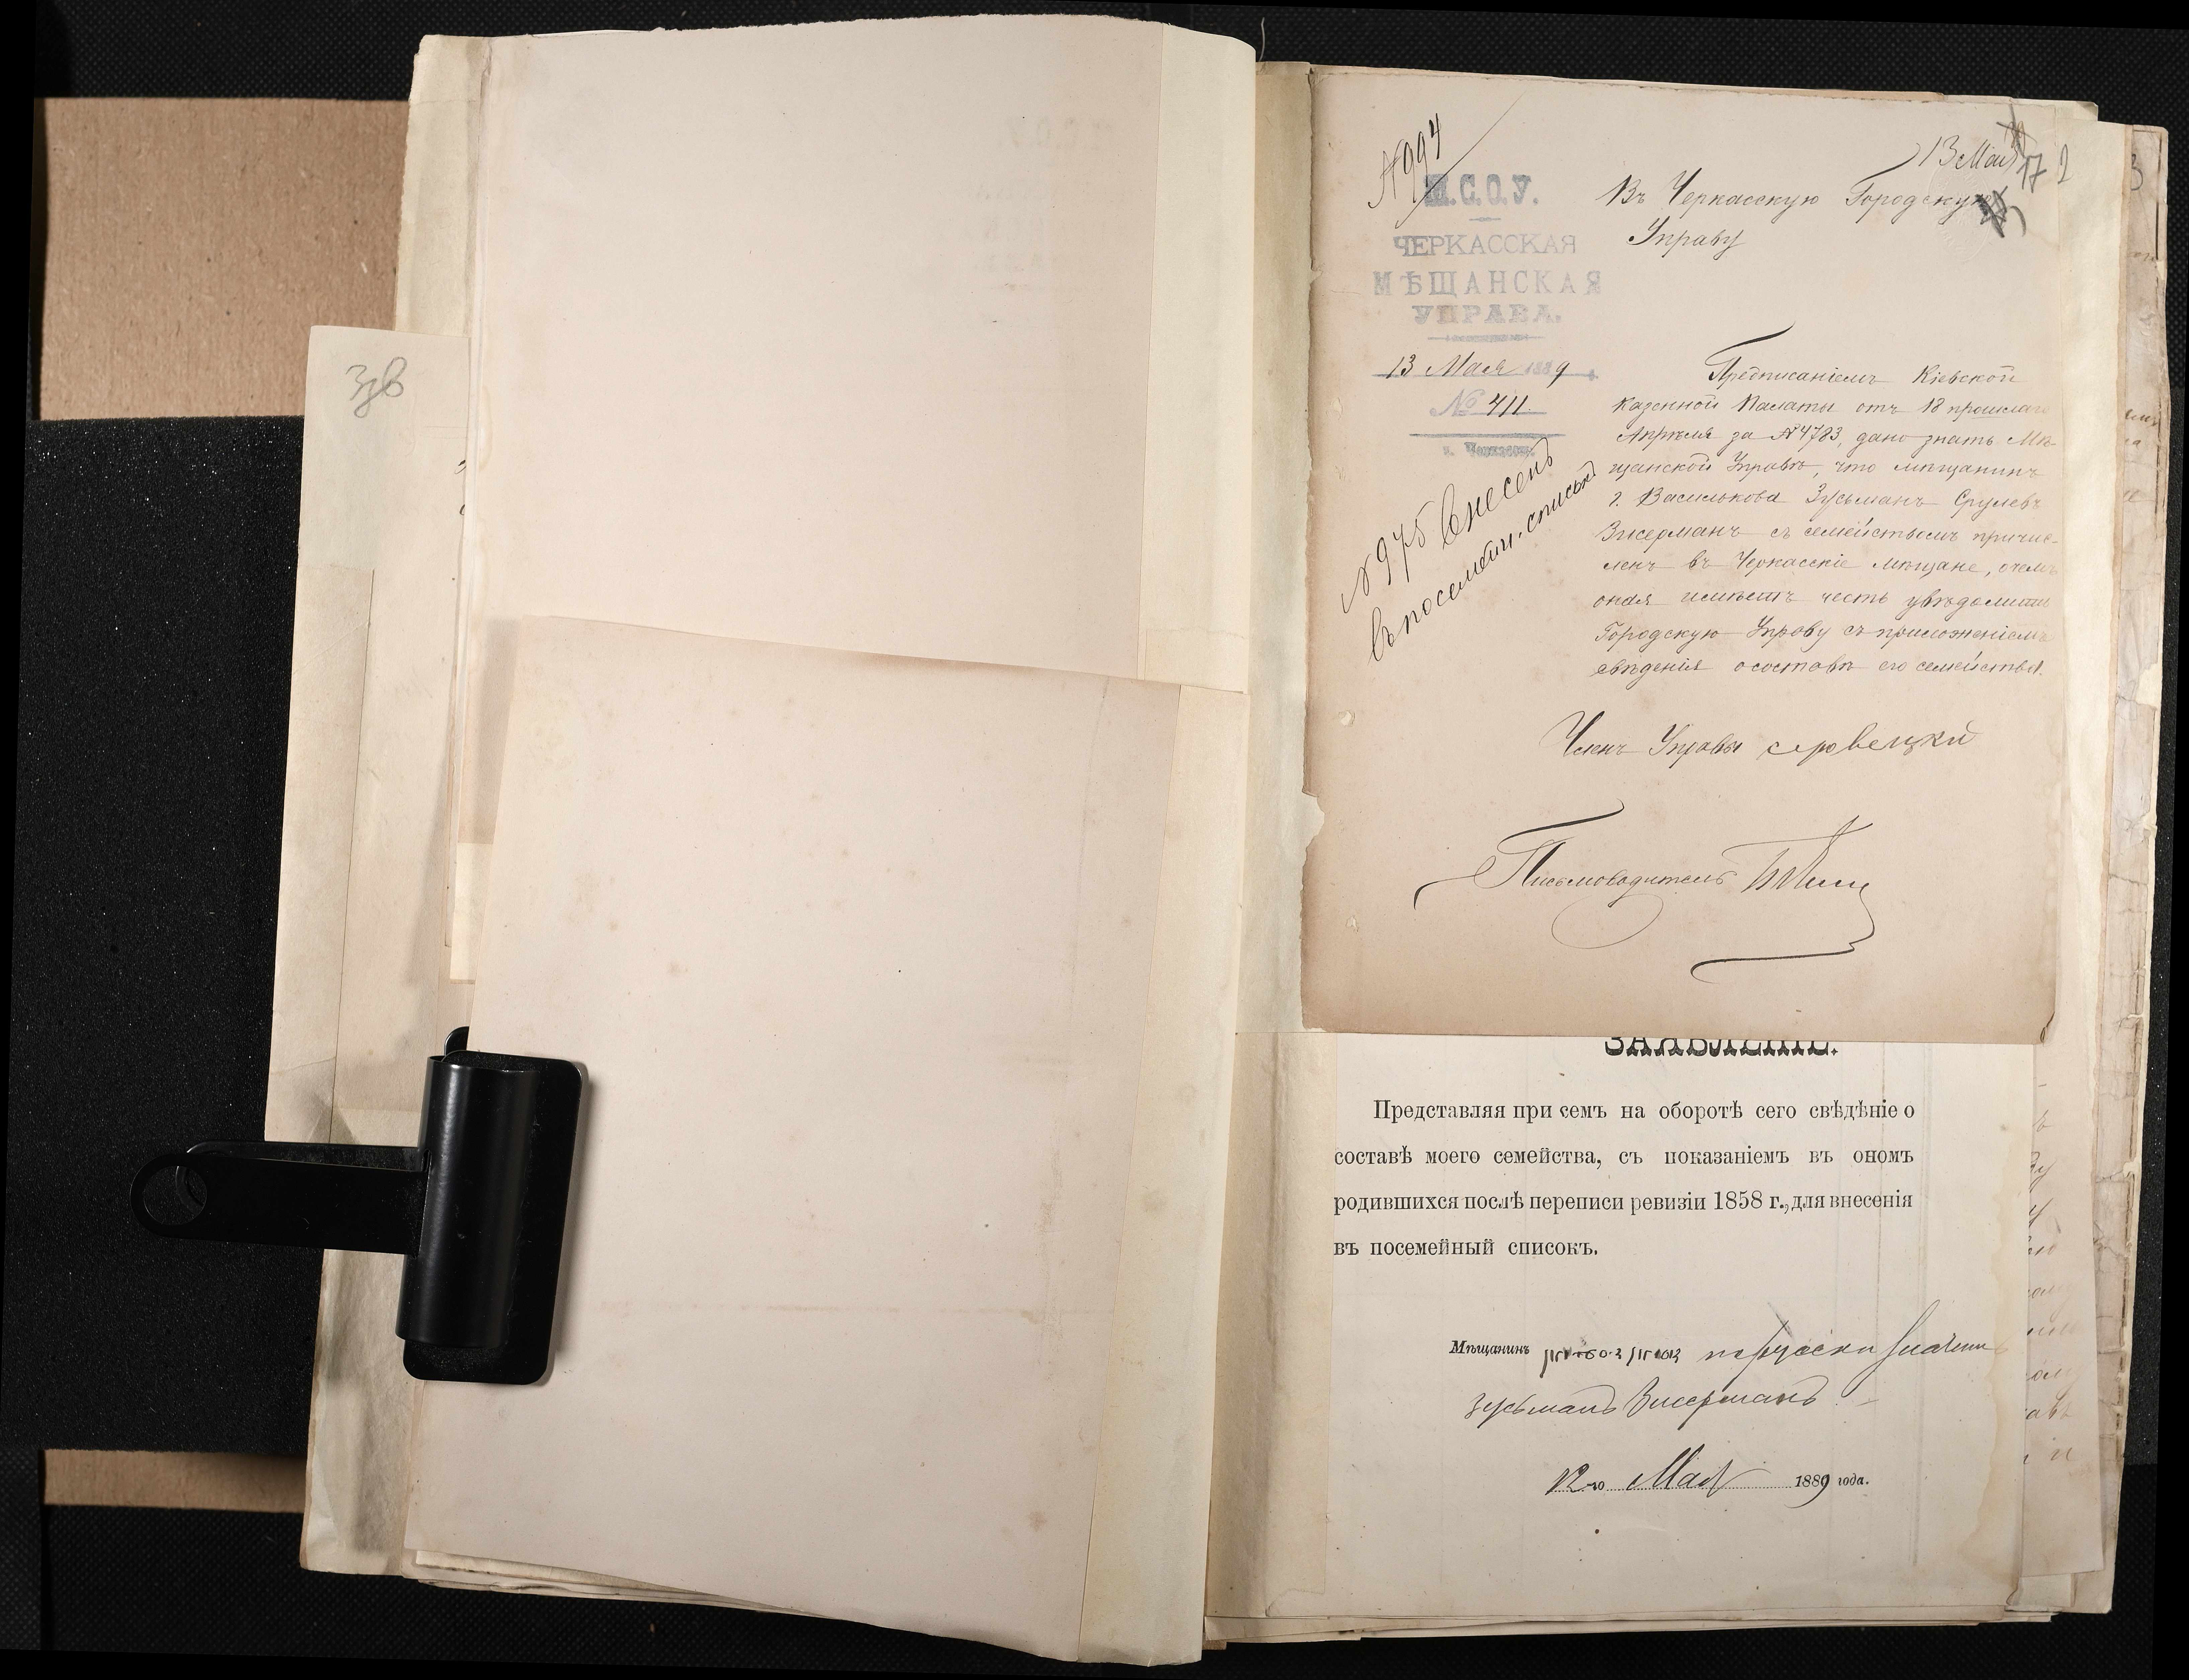 Зув
№ 994
13 Мая
17
2
М.С.О.У.
ЧЕРКАССКАЯ
МѢЩАНСКАЯ
УПРАВА.
13 Мая 1889
№ 411.
г. Черкассы.
Въ Черкасскую Городскую
Управу
№ 975 внесенъ
въ посемейн. списокъ
Предписаніемъ Кіевской
Казенной Палаты отъ 18 прошлаго
Апрѣля за № 4783, дано знать Мѣ-
щанской Управѣ, что мѣщанинъ
г. Василькова Зусьманъ Срулевъ
Зисерманъ съ семействомъ причис-
ленъ въ Черкасскіе мѣщане, о чемъ
оная имѣетъ честь увѣдомить
Городскую Управу съ приложеніемъ
свѣденія о составѣ его семейства.
Членъ Управы
Письмоводитель
ЗАЯВЛЕНІЕ.
Представляя при семъ на оборотѣ сего свѣдѣніе о
составѣ моего семейства, съ показаніемъ въ ономъ
родившихся послѣ переписи ревизіи 1858 г., для внесенія
въ посемейный списокъ.
Мѣщанинъ זוסמאן זיסערמאן по русски значитъ
Зусьманъ Зисерманъ
12 го Мая 1889 года.